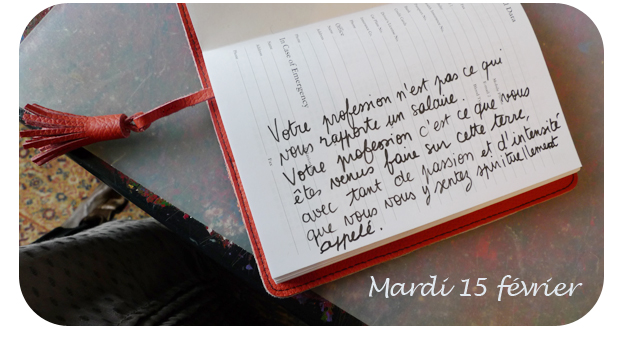 In Case of Emergency
Office
Votre profession n'est pas ce qui
vous rapporte un salaire.
Votre profession c'est ce que vous
êtes venus faire sur cette terre,
avec tant de passion et d'intensité
que vous vous y sentez spirituellement
appelé.
Mardi 15 février